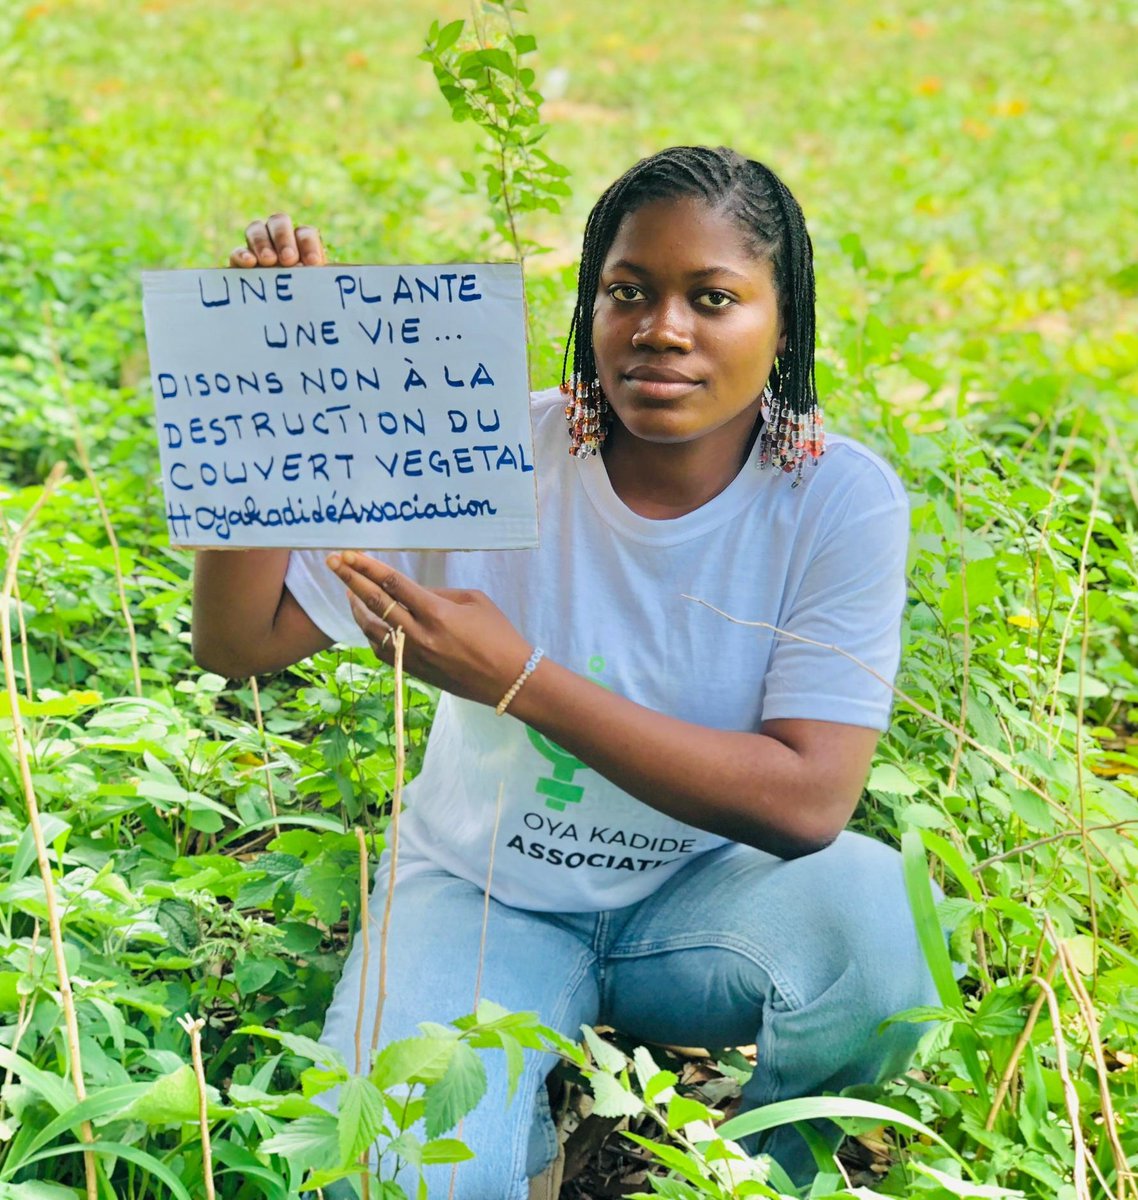 UNE PLANTE
UNE VIE...
DISONS NON À LA
DESTRUCTION DU
COUVERT VEGETAL
#OyakadidéAssociation
OYA KADIDE
ASSOCIATI